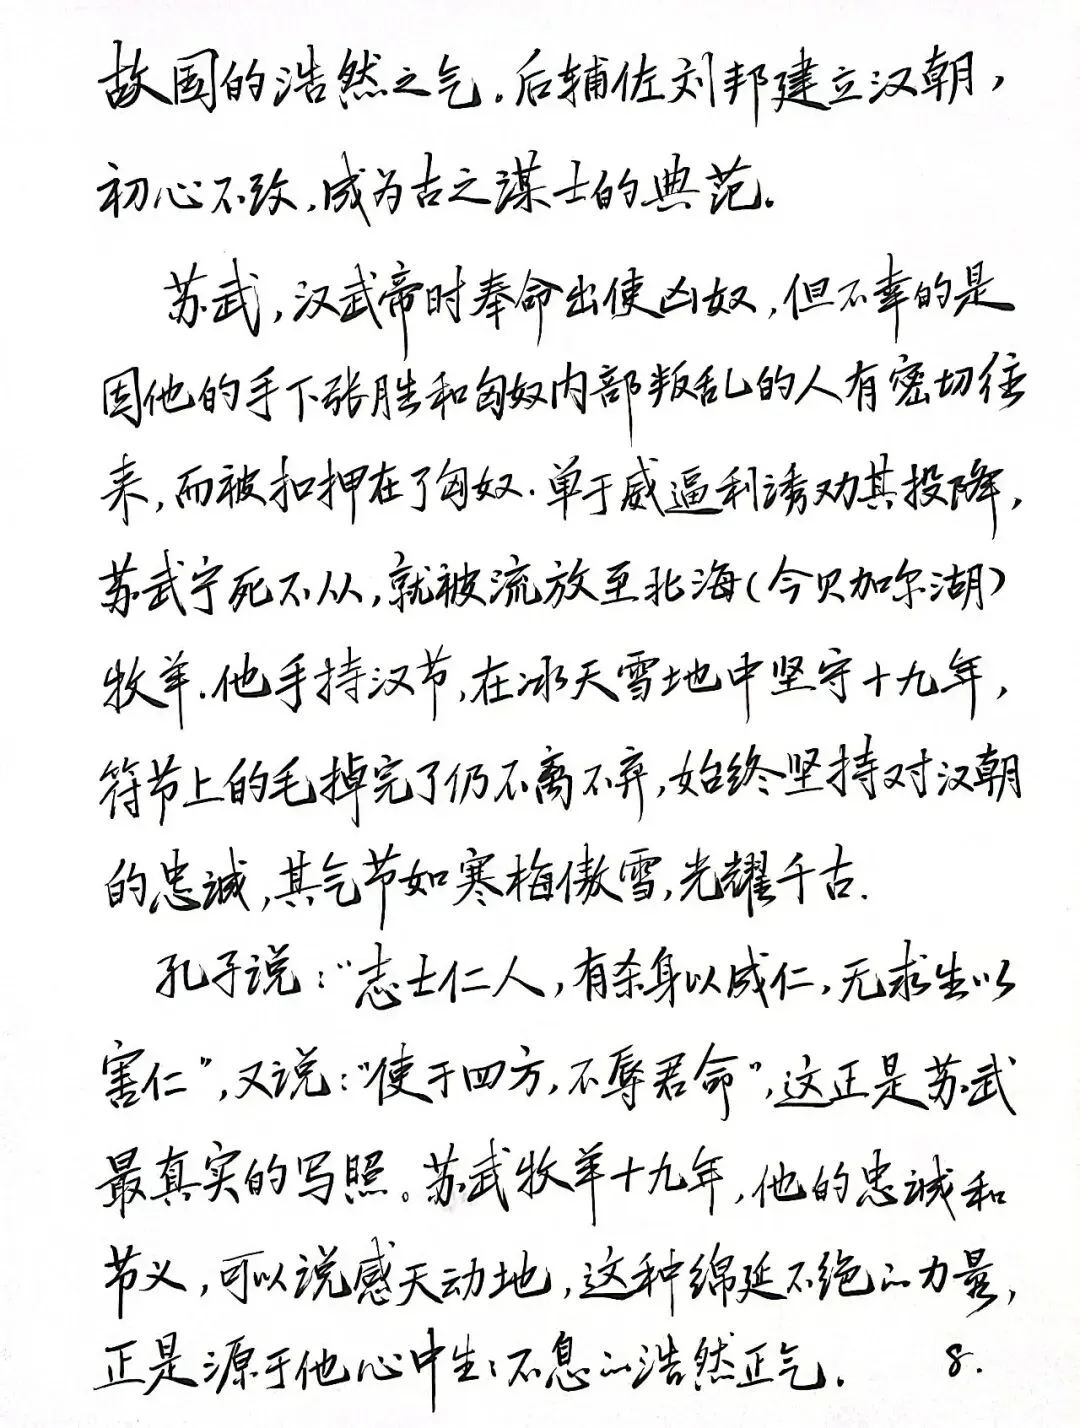 故国的浩然之气。后辅佐刘邦建立汉朝，
初心不改，成为古之谋士的典范。
苏武，汉武帝时奉命出使凶奴，但不幸的是
因他的手下张胜和匈奴内部叛乱的人有密切往
来，而被扣押在了匈奴.单于威逼利诱劝其投降，
苏武宁死不从，就被流放至北海（今贝加尔湖）
牧羊.他手持汉节，在冰天雪地中坚守十九年，
符节上的毛掉完了仍不离不弃，始终坚持对汉朝
的忠诚，其气节如寒梅傲雪，光耀千古.
孔子说：“志士仁人，有杀身以成仁，无求生以
害仁”，又说：“使于四方，不辱君命”，这正是苏武
最真实的写照。苏武牧羊十九年，他的忠诚和
节义，可以说感天动地，这种绵延不绝的力量，
正是源于他心中生生不息的浩然正气.
8.